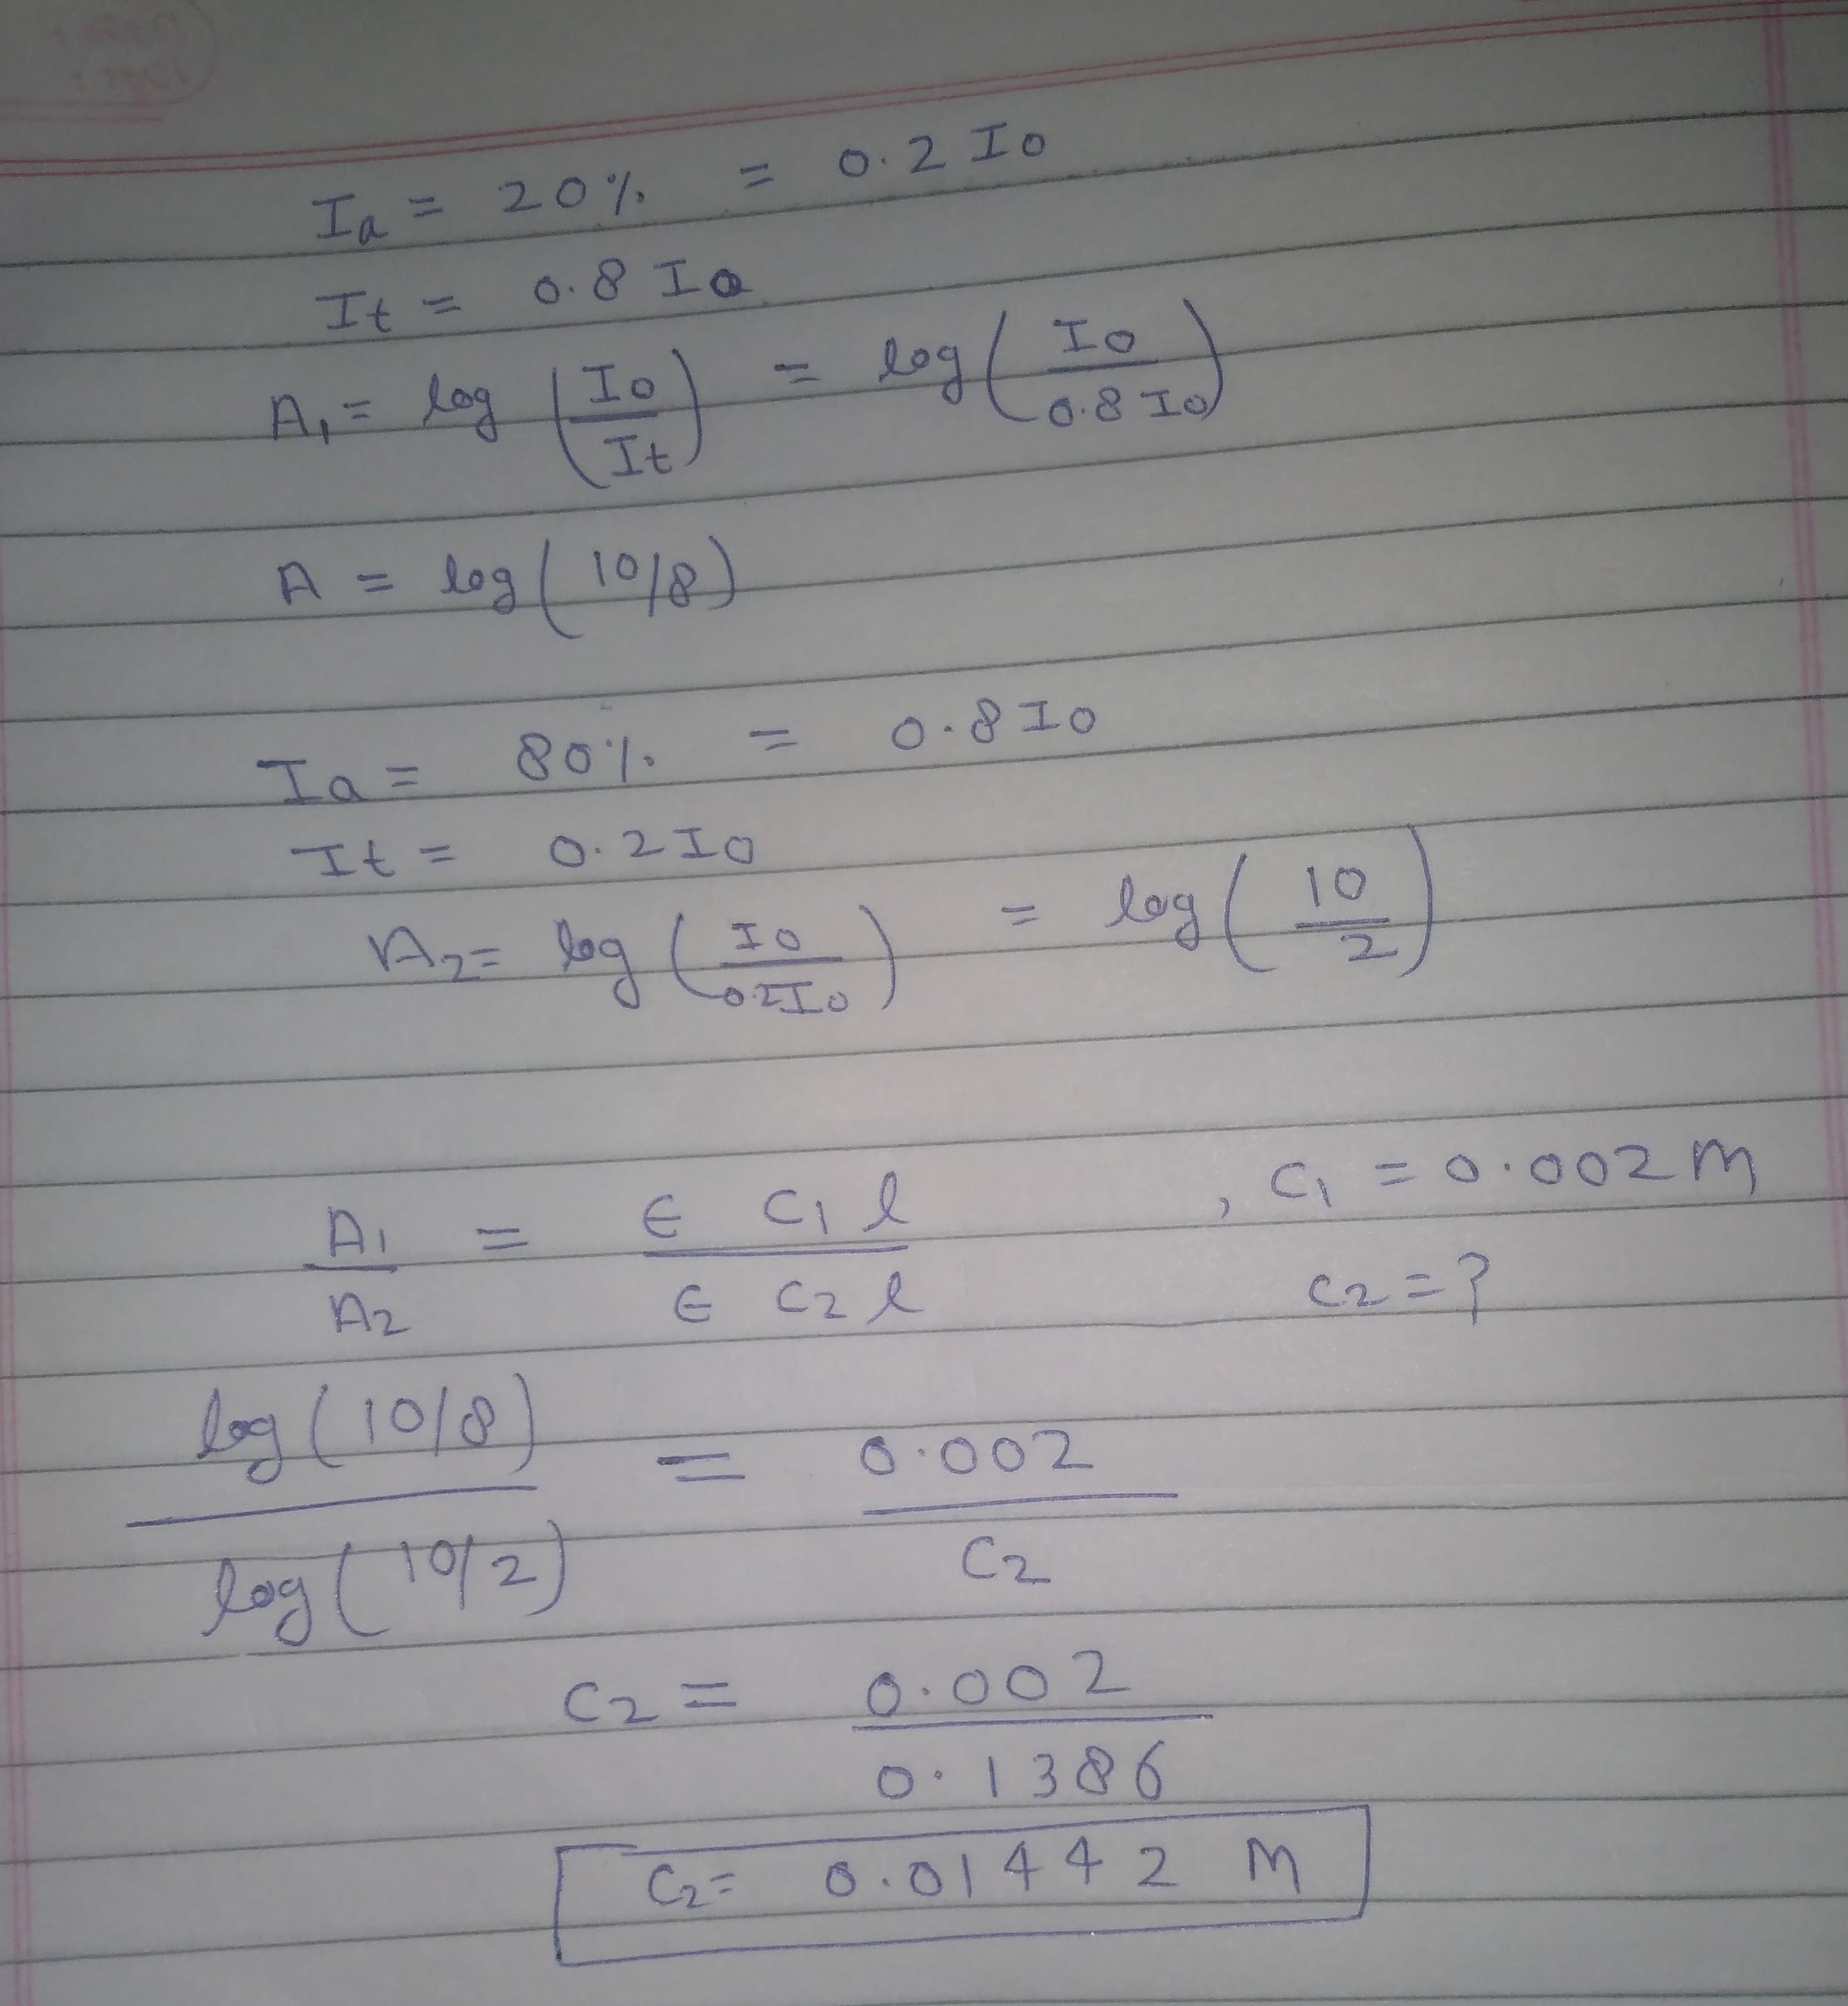 Ia = 20% = 0.2 Io
It = 0.8 Io
A₁ = log (Io/It) = log (Io/0.8 Io)
A = log (10/8)
Ia = 80% = 0.8 Io
It = 0.2 Io
A₂ = log (Io/0.2Io) = log (10/2)
A₁/A₂ = ∈ C₁ l/∈ C₂ l , C₁ = 0.002 M
C₂ = ?
log (10/8)/log (10/2) = 0.002/C₂
C₂ = 0.002/0.1386
C₂ = 0.01442 M